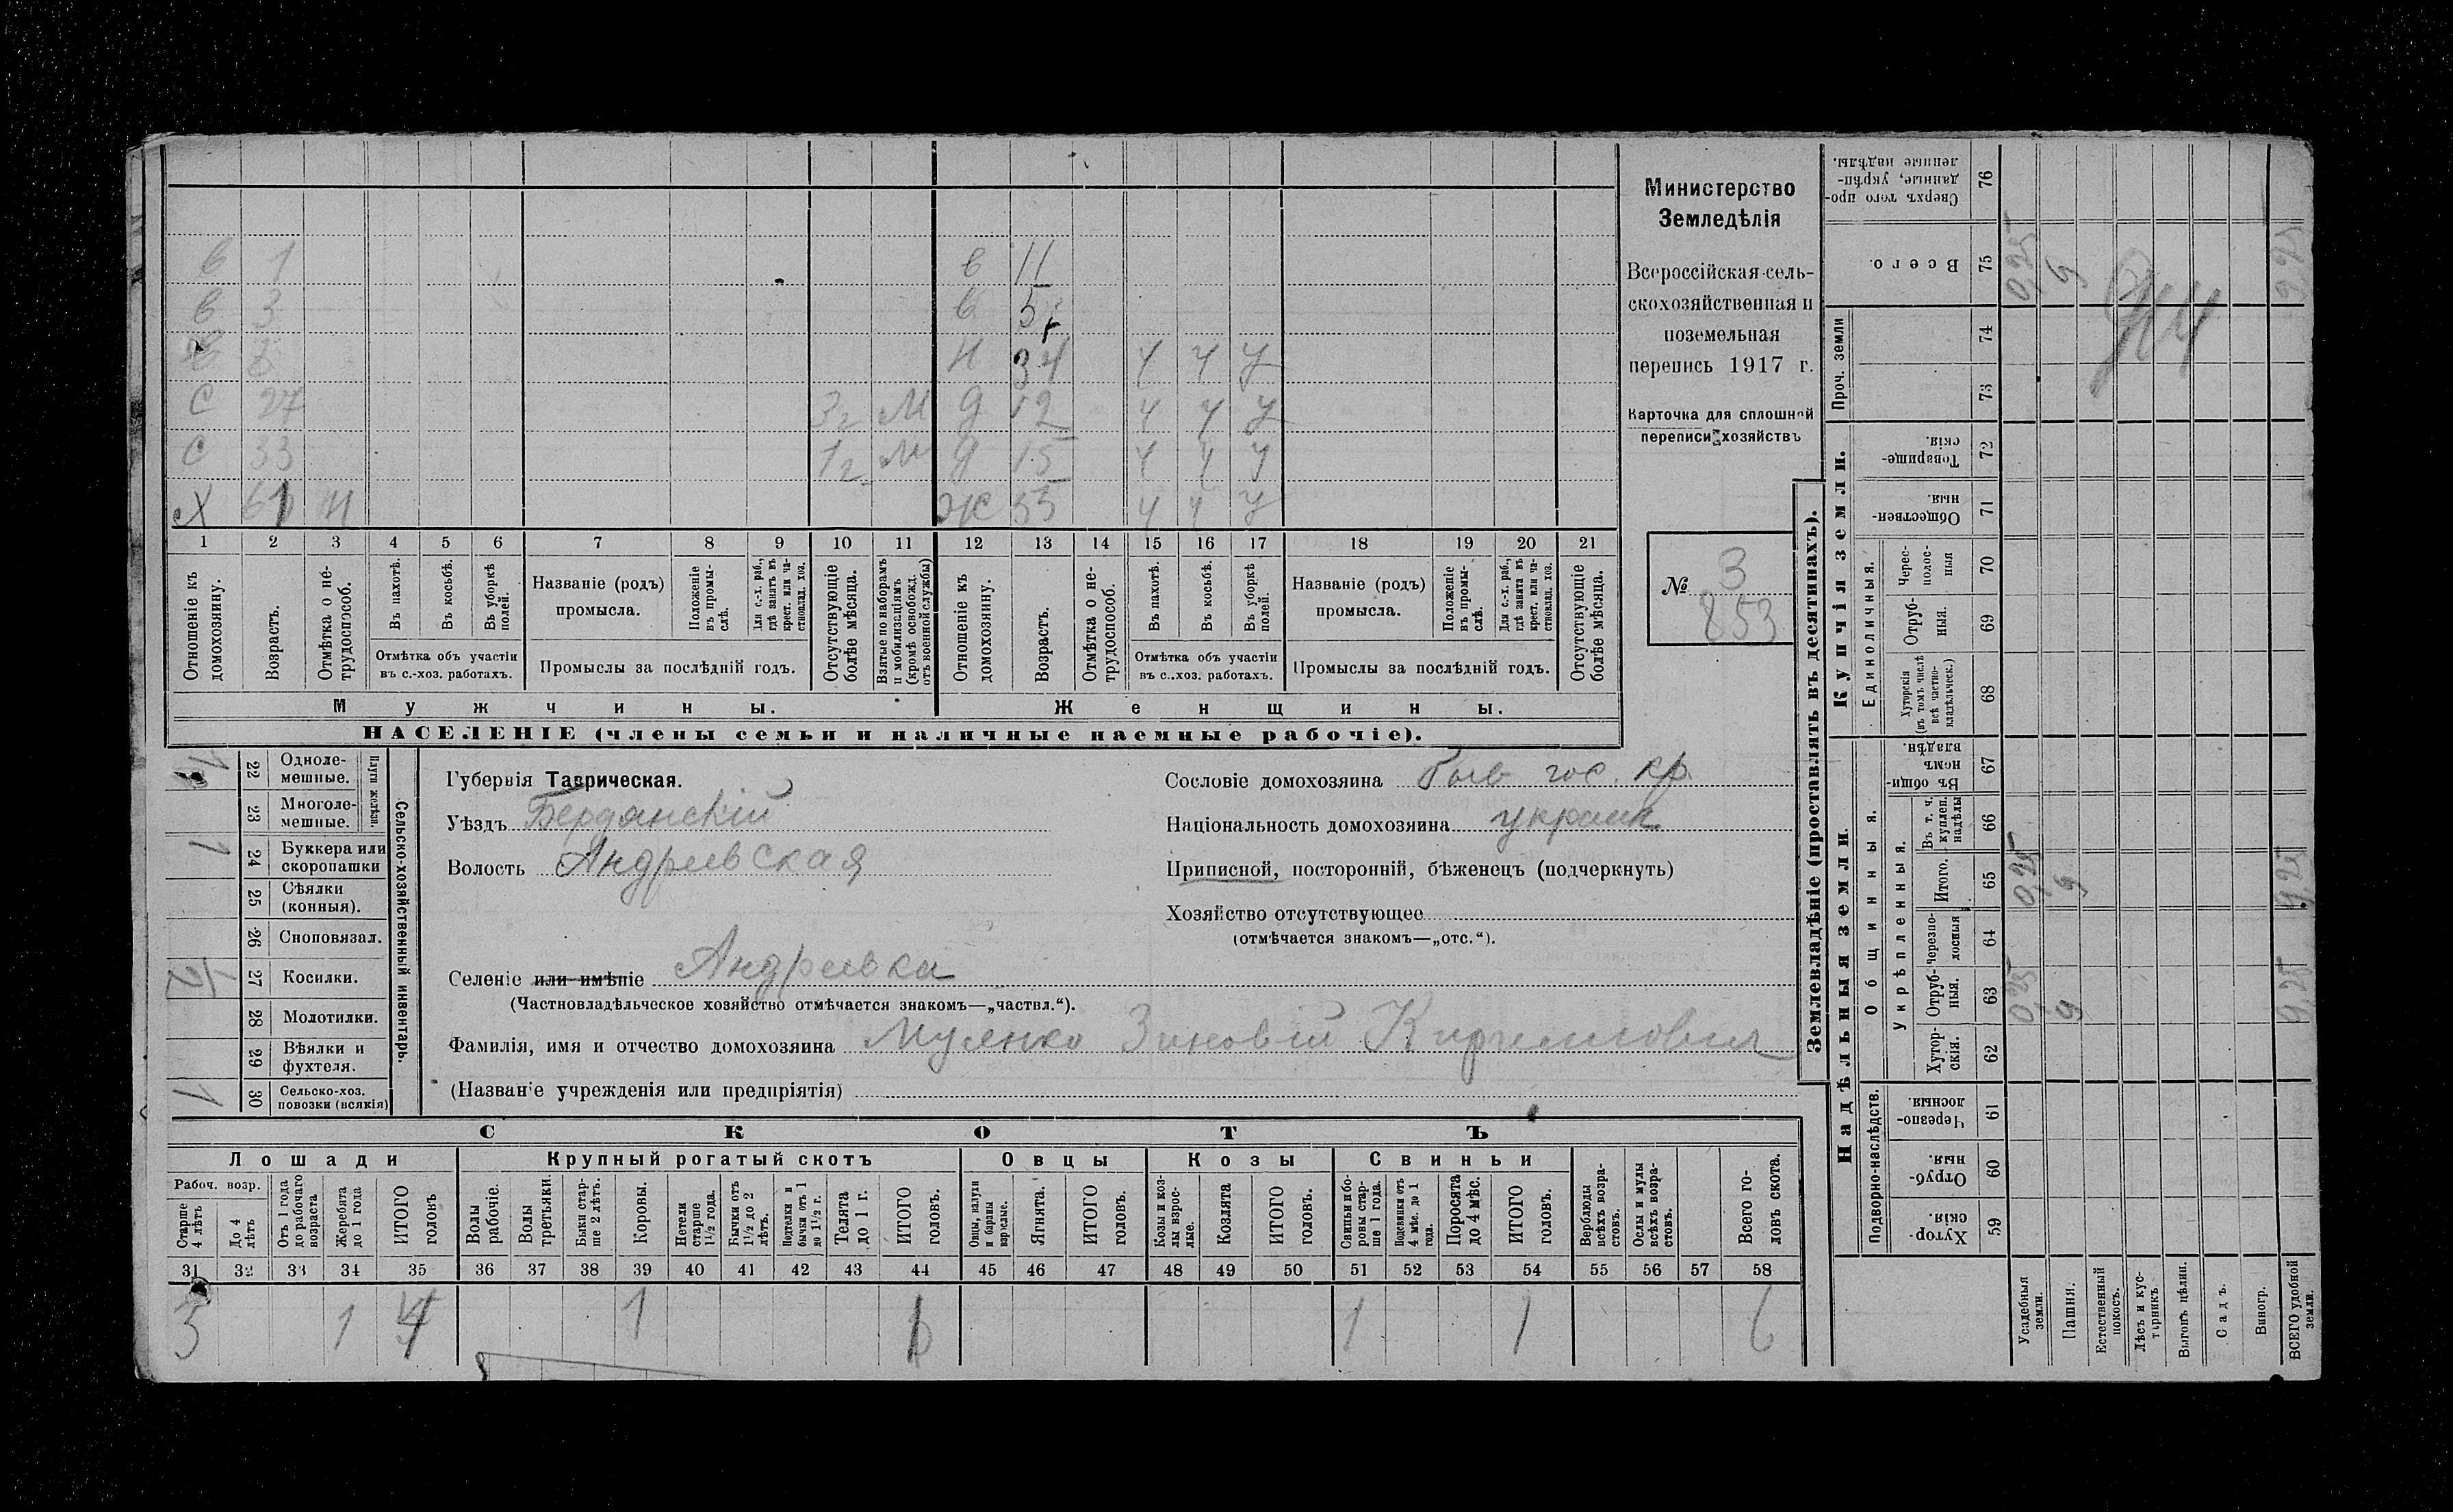 в 1 в 11
в 3 в 5
Н 34 ч ч у
С 27 32 М д 12 ч ч у
С 33 12 М д 15 ч ч у
Х 61 н Ж 55 ч ч у
1 2 3 4 5 6 7 8 9 10 11 12 13 14 15 16 17 18 19 20 21
Отношеніе къ домохозяину.
Возрастъ.
Отмѣтка о не-трудоспособ.
Въ пахотѣ.
Въ косьбѣ.
Въ уборкѣ полей.
Отмѣтка объ участіи въ с.-хоз. работахъ.
Названіе (родъ) промысла.
Положеніе въ промы-слѣ.
Для с.-х. раб., гдѣ занятъ въ крест. или ча-стновлад. хоз.
Промыслы за послѣдній годъ.
Отсутствующіе болѣе мѣсяца.
Взятые по наборамъ и мобилизаціямъ (кромѣ освобожд. отъ военной службы)
Отношеніе къ домохозяину.
Возрастъ.
Отмѣтка о не-трудоспособ.
Въ пахотѣ.
Въ косьбѣ.
Въ уборкѣ полей.
Отмѣтка объ участіи въ с..хоз. работахъ.
Названіе (родъ) промысла.
Положеніе въ промы-слѣ.
Для с.-х. раб., гдѣ занята въ крест. или ча-стновлад. хоз.
Промыслы за послѣдній годъ.
Отсутствующіе болѣе мѣсяца.
Мужчины. Женщины.
НАСЕЛЕНІЕ (члены семьи и наличные наемные рабочіе).
Министерство
Земледѣлія
Всероссійская сель-
скохозяйственная и
поземельная
перепись 1917 г.
Карточка для сплошной
переписи хозяйствъ
№ 3
853
Сельско-хозяйственный инвентарь.
Плуги желѣзн.
22 Одноле-мешные. 1
23 Многоле-мешные.
24 Буккера или скоропашки 1
25 Сѣялки (конныя).
26 Сноповязал.
27 Косилки. 1/2
28 Молотилки.
29 Вѣялки и фухтеля.
30 Сельско-хоз. повозки (всякія) 1
Губернія Таврическая.
Уѣздъ Бердянскій
Волость Андреевская
Сословіе домохозяина быв гос. кр.
Національность домохозяина украин
Приписной, посторонній, бѣженецъ (подчеркнуть)
Хозяйство отсутствующее
(отмѣчается знакомъ—„отс.“).
Селеніе или имѣніе Андреевка
(Частновладѣльческое хозяйство отмѣчается знакомъ—„частвл.“).
Фамилія, имя и отчество домохозяина Зиновій Кирилловичъ
(Названіе учрежденія или предпріятія)
СКОТЪ
Лошади Крупный рогатый скотъ Овцы Козы Свиньи
Рабоч. возр.
Старше 4 лѣтъ
До 4 лѣтъ
Отъ 1 года до рабочаго возраста
Жеребята до 1 года
ИТОГО головъ
Волы рабочіе.
Волы третьяки.
Быки стар-ше 2 лѣтъ.
Коровы.
Нетели старше 1½ года.
Бычки отъ 1½ до 2 лѣтъ.
Подтелки и бычки отъ 1 до 1½ г.
Телята до 1 г.
ИТОГО головъ.
Овцы, валухи и бараны взрослые.
Ягнята.
ИТОГО головъ.
Козы и коз-лы взрос-лые.
Козлята
ИТОГО головъ.
Свиньи и бо-ровы стар-ше 1 года.
Подсвинки отъ 4 мѣс. до 1 года.
Поросята до 4 мѣс.
ИТОГО головъ.
Верблюды всѣхъ возра-стовъ.
Ослы и мулы всѣхъ возра-стовъ.
Всего го-ловъ скота.
31 32 33 34 35 36 37 38 39 40 41 42 43 44 45 46 47 48 49 50 51 52 53 54 55 56 57 58
3 1 4 1 1 1 1 6
Землевладѣніе (проставлять въ десятинахъ).
Надѣльныя земли. Купчія земли.
Подворно-наслѣдств. Общинныя. Укрѣпленныя. Единоличныя. Проч. земли
59 Хутор-скія.
60 Отруб-ныя.
61 Черезпо-лосныя.
62 Хутор-скія.
63 Отруб-ныя. 0,25 9 9,25
64 Черезпо-лосныя
65 Итого. 0,25 9 9,25
66 Въ т. ч. куплен. надѣлы
67 Въ общи-номъ владѣн.
68 Хуторскія (въ томъ числѣ всѣ частно-владѣльческ.)
69 Отруб-ныя.
70 Черес-полос-ныя
71 Обществен-ныя.
72 Товарище-скія.
73
74
75 Всего. 0,25 9 9,25
76 Сверхъ того про-данные, укрѣп-ленные надѣлы.
Усадебныя земли.
Пашня.
Естественный покосъ.
Лѣсъ и кус-тарникъ
Выгонъ цѣлин.
Садъ.
Виногр.
ВСЕГО удобной земли.